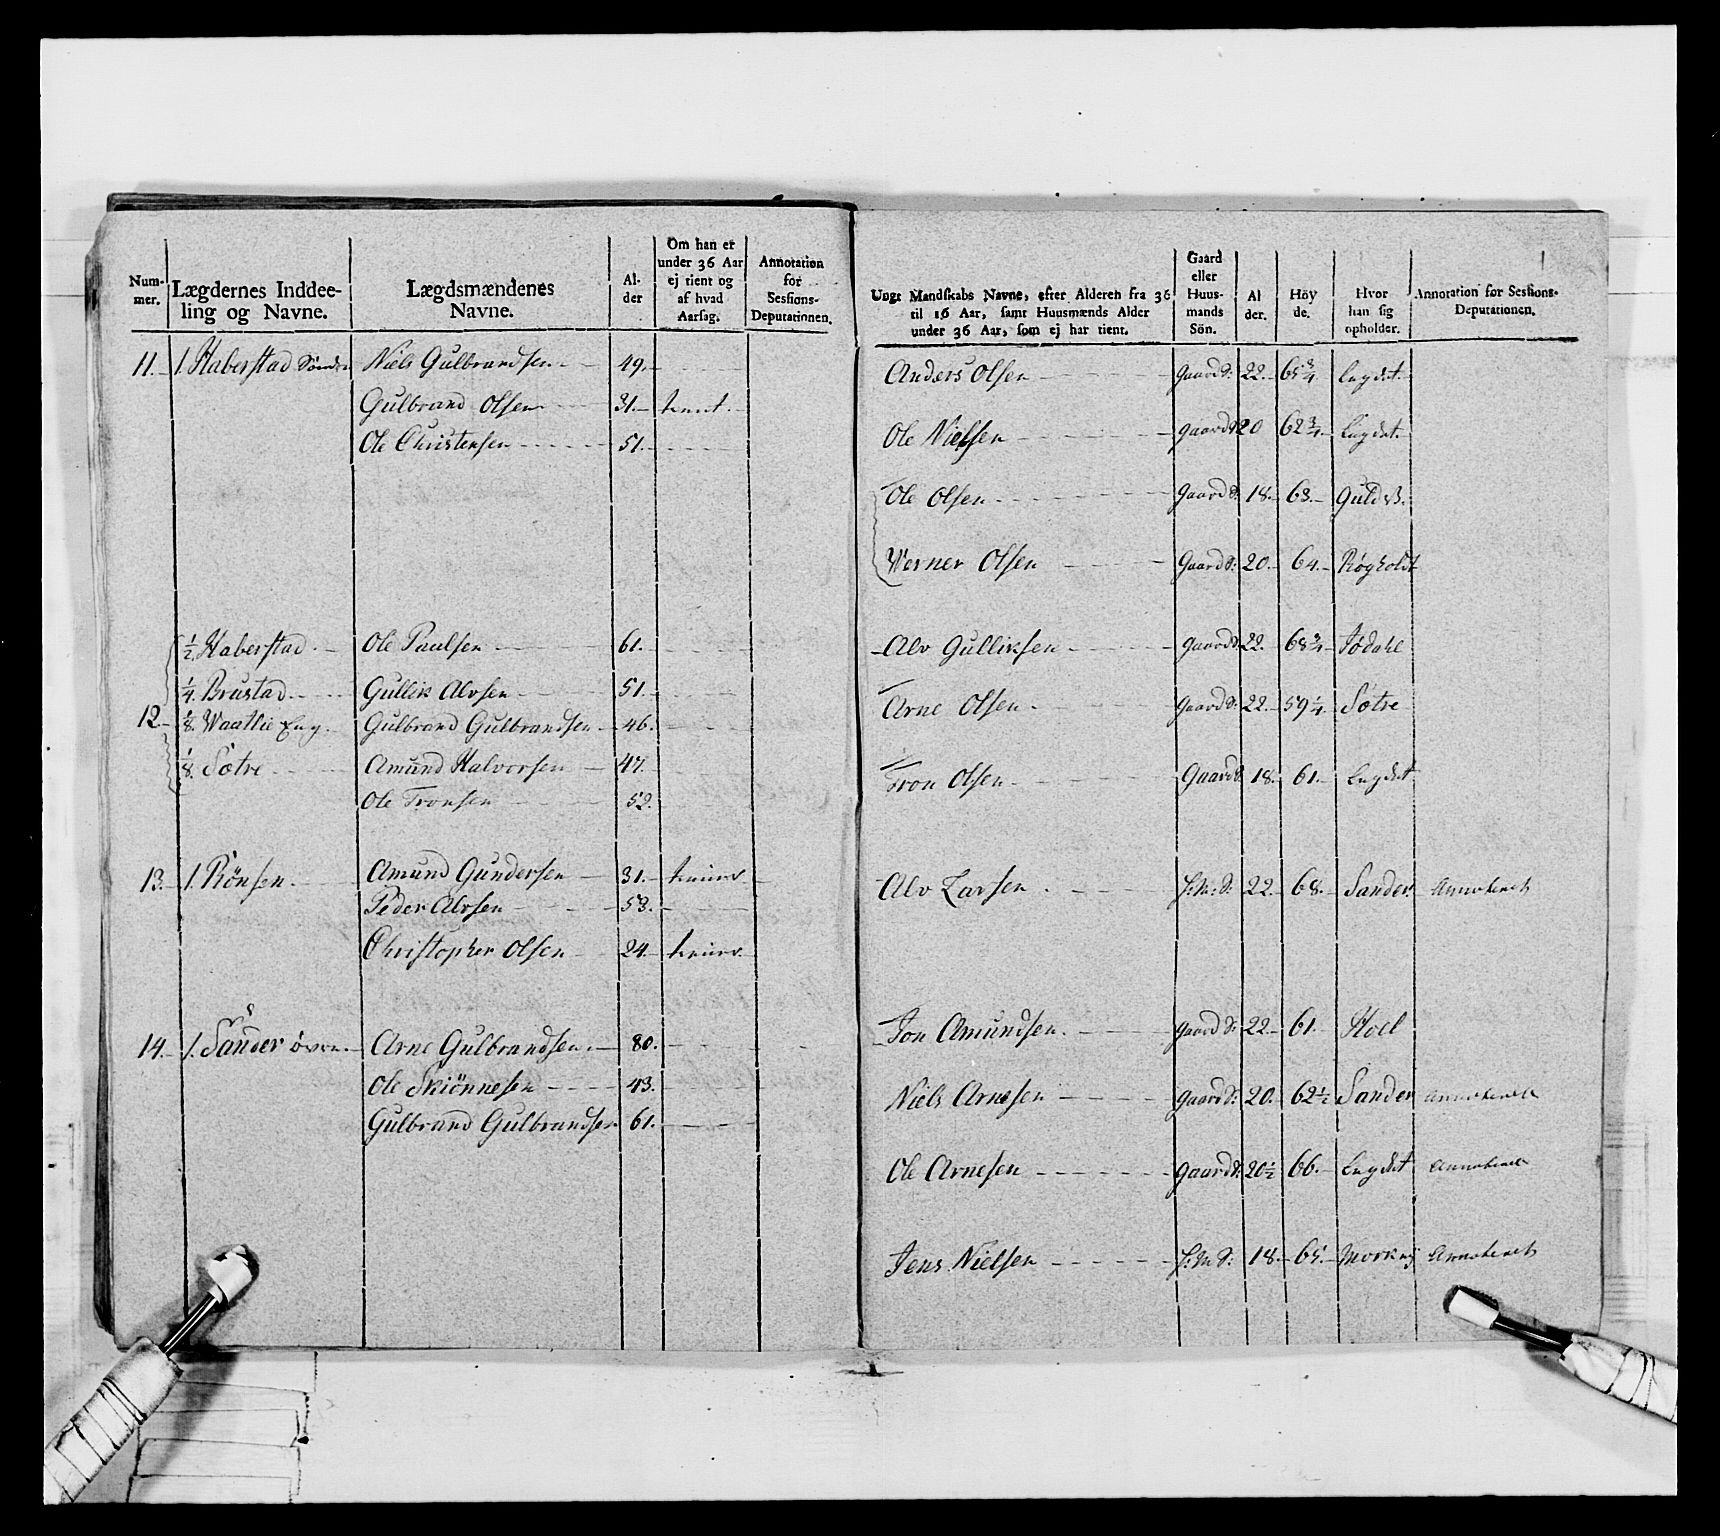 Num-
mer.
Lægdernes Inddee-
ling og Navne.
Lægdsmændenes
Navne.
Al-
der
Om han er
under 36 Aar
ej tient og
af hvad
Aarsag.
Annotation
for
Sessions-
Deputationen.
11. 1. Haberstad Sönder Niels Gulbrandsen 49.
Gulbrand Olsen 31. tient.
Ole Christensen 51.
½ Haberstad. Ole Paulsen 61.
¼. Brustad. Gullik Alvsen 51.
12. ⅛. Waatlie Eng. Gulbrand Gulbrandsen 46.
⅛. Sötre Amund Halvorsen 47.
Ole Tronsen 52.
13. 1. Rönsen. Amund Gundersen 31.
Peder Alvsen 53.
Christopher Olsen 24.
14. 1. Sander övre. Arne Gulbrandsen. 80.
Ole Skiönnesen 43.
Gulbrand Gulbrandsen 61.
Ungt Mandskabs Navne, efter Alderen fra 36
til 16 Aar, samt Huusmænds Alder
under 36 Aar, som ej har tient.
Gaard
eller
Huus-
mands
Sön.
Al
der.
Höy
de.
Hvor
han sig
opholder.
Annotation for Sessions-
Deputationen.
Anders Olsen Gaard S: 22. 65¾ Lægdet.
Ole Nielsen Gaard S: 20 62¾. Lægdet.
Ole Olsen Gaard S: 18. 63.
Werner Olsen Gaard S: 20. 64. Røgholdt
Alv Gulliksen Gaard S: 22. 63¾ Jödahl
Arne Olsen Gaard S: 22. 59¼ Sötre
Tron Olsen Gaard S. 18. 61. Lægdet
Alv Larsen H:M:S: 22. 68. Sander. Annoteret
Jon Amundsen. Gaard S: 22. 61. Hoel
Niels Arnesen Gaard S: 20. 62½ Sander Annoteret
Ole Arnesen Gaard S: 20½ 66. Lægdet Annoteret
Jens Nielsen H:M:S: 18. 65. Annoteret